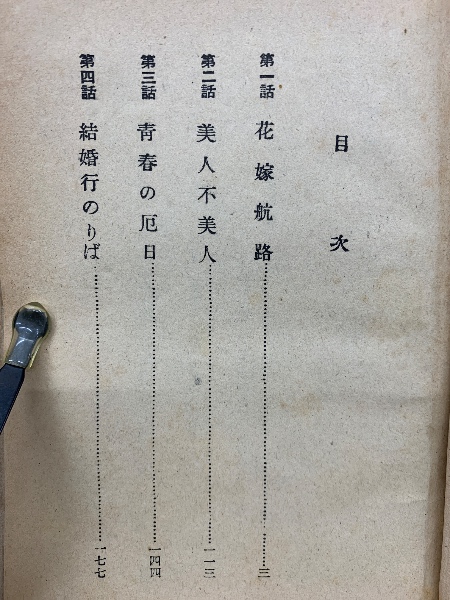 目次
第一話 花嫁航路…………三
第二話 美人不美人…………一一三
第三話 青春の厄日…………一四四
第四話 結婚行のりば…………一七七